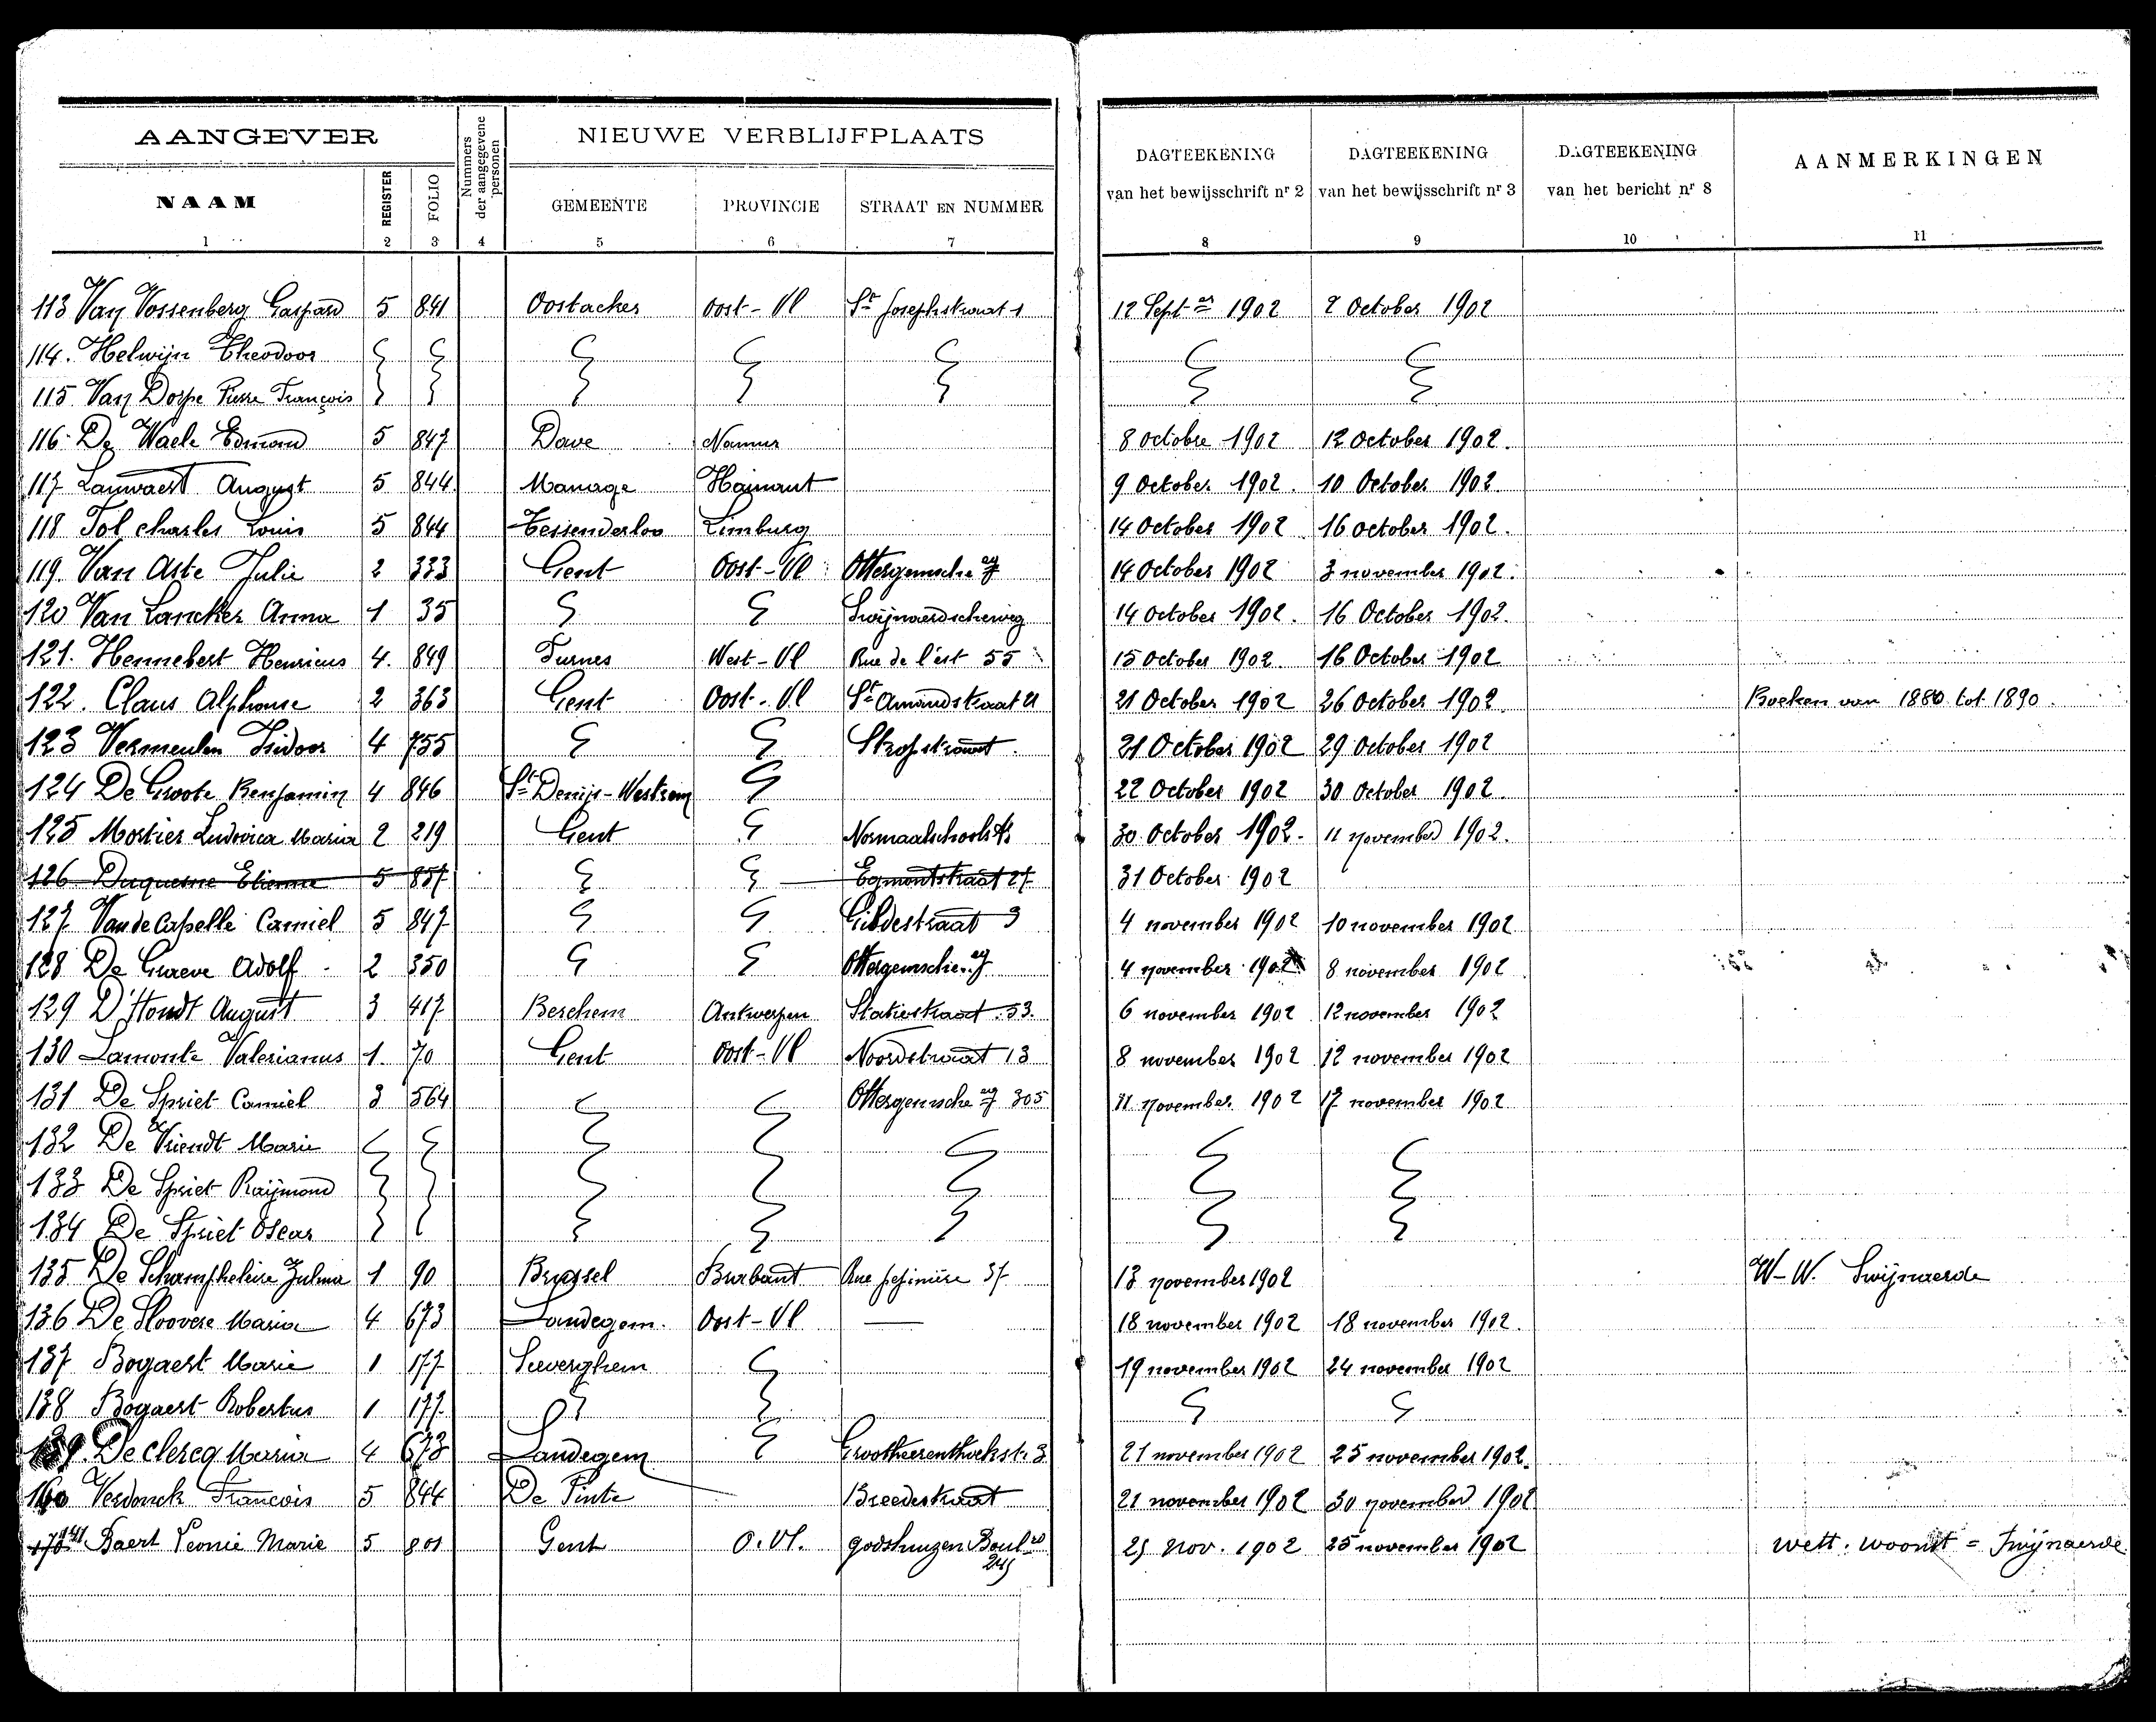 AANGEVER
Nummers der aangegevene personen
NIEUWE VERBLIJFPLAATS
DAGTEEKENING van het bewijsschrift nr 2
DAGTEEKENING van het bewijsschrift nr 3
DAGTEEKENING van het bericht nr 8
AANMERKINGEN
NAAM REGISTER FOLIO GEMEENTE PROVINCIE STRAAT EN NUMMER
1 2 3 4 5 6 7 8 9 10 11
113 Van Vossenberg Gaspard 5 841 Oostacker Oost-Vl St Josephstraat 1 12 Sept er 1902 2 October 1902
114. Helwijn Theodoor
115 Van Dorpe Pierre François
116. De Waele Edmond 5 847 Dave Namur 8 octobre 1902 12 October 1902.
117 Lauwaert August 5 844 Manage Hainaut 9 October 1902. 10 October 1902.
118 Tol charles Louis 5 844 Tessenderloo Limburg 14 October 1902 16 october 1902.
119. Van Aste Julie 2 333 Gent Oost-Vl Ottergemsche 14 October 1902 3 november 1902.
120 Van Lancker Anna 1 35 Swijnaerdscheweg 14 october 1902. 16 October 1902.
121. Hennebert Henricus 4. 849 Furnes West-Vl Rue de l'ést 55 15 October 1902. 16 October 1902
122. Claus Alphonse 2 363 Gent Oost-Vl St Amandstraat 21 21 October 1902 26 October 1902 Boeken van 1880 tot 1890.
123 Vermeulen Isidoor 4 755 Stropstraat. 21 October 1902 29 October 1902
124 De Groote Benjamin 4 846 St Denijs-Westrem 22 October 1902 30 October 1902.
125 Mortier Ludovica Maria 2 219 Gent Normaalschoolst 30 October 1902. 11 november 1902.
126 Duquesne Etienne 5 857 Egmontstraat 27 31 October 1902
127 Van de Capelle Camiel 5 847 Gildestraat 9 4 november 1902 10 november 1902
128 De Gueve Adolf 2 350 Ottergemsche 4 november 1902 8 november 1902
129 D'Hondt August 3 417 Berchem Antwerpen Statiestraat 53. 6 november 1902 12 november 1902
130 Lamonte Valerianus 1. 70 Gent Oost-Vl Noordstraat 13 8 november 1902 12 november 1902
131 De Spriet Camiel 3 564 Ottergemsche 305 11 november 1902 17 november 1902
132 De Vriendt Marie
133 De Spriet Raijmond
134 De Spriet Oscar
135 De Schampheleire Zulma 1 90 Brussel Brabant Rue pepinière 37 13 november 1902 W-W. Swijnaerde
136 De Sloovere Maria 4 673 Landegem. Oost-Vl — 18 november 1902 18 november 1902.
137 Bogaert Marie 1 177 Seeverghem 19 november 1902 24 november 1902
138 Bogaert Robertus 1 177
139. De clercq Maria 4 673 Landegem 3 21 november 1902 25 november 1902.
140 Verdonck François 5 844 De Pinte Breedestraat 21 november 1902 30 november 1902
141 Baert Leonie Marie 5 801 Gent O. Vl. godshuizen Boul rd 25 nov. 1902 25 november 1902 wett. woonst = Swijnaerde
245